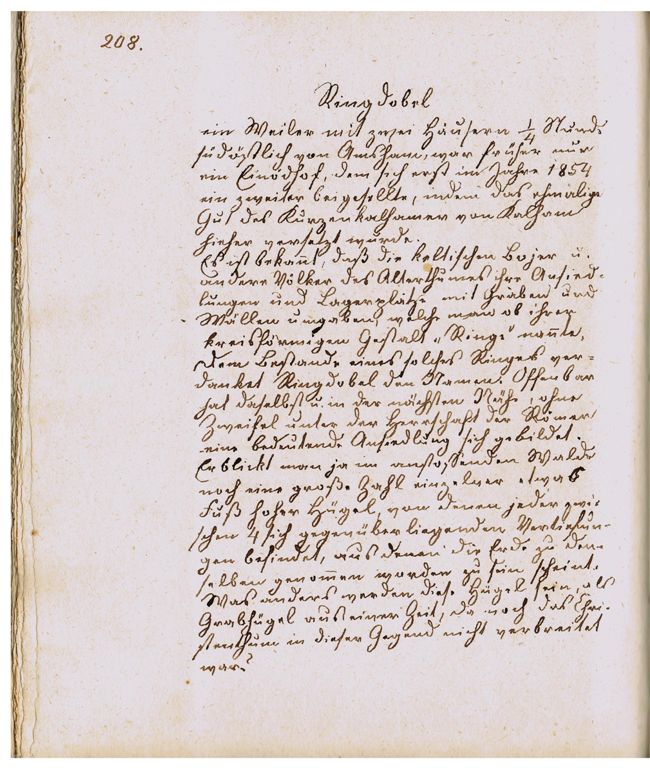 208.
Ringdobel
ein Weiler mit zwei Häusern 1/4 Stunde
südöstlich von Amsham, war früher nur
ein Einödhof, dem sich erst im Jahre 1854
ein zweiter beigesellte, indem das ehmalige
Gut des Kurzenkalhamer von Kalham
hieher versetzt wurde.
Es ist bekannt, daß die keltischen Bojer u.
andere Völker des Alterthumes ihre Ansied-
lungen und Lagerplätze mit Gräben und
Wällen umgaben, welche man ob ihrer
kreisförmigen Gestalt „Ringe" nannte,
Dem Bestande eines solches Ringes ver-
danket Ringdobel den Namen. Offenbar
hat daselbst u. in der nächsten Nähe, ohne
Zweifel unter der Herrschaft der Römer
eine bedeutende Ansiedlung sich gebildet.
Erblickt man ja im anstossenden Walde
noch eine große Zahl einzelner etwa 6
Fuß hoher Hügel, von denen jeder zwi-
schen 4 sich gegenüberliegenden Vertiefun-
gen befindet, aus denen die Erde zu den-
selben genommen worden zu sein scheint.
Was anders werden diese Hügel sein, als
Grabhügel aus einer Zeit, da noch das Chri-
stenthum in dieser Gegend nicht verbreitet
war?